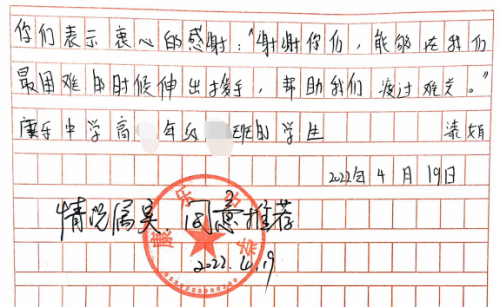 你们表示衷心的感谢:“谢谢你们,能够在我们
最困难的时候伸出援手,帮助我们渡过难关。”
康乐中学高 年级 班的学生 梁娟
2022年4月19日
情况属实 同意推荐
2022.4.19